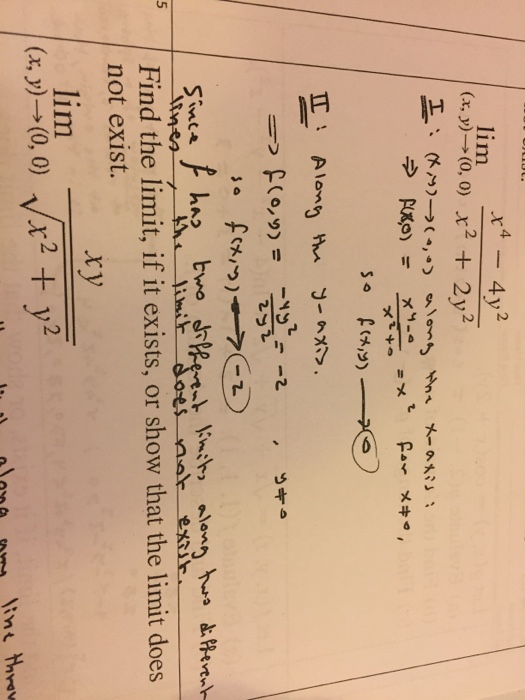 lim
(x, y)→(0, 0)
x⁴ − 4y²
x² + 2y²
I : (x,y)→(0,0) along the x-axis :
⇒ f(x,0) = (x⁴-0)/(x²+0) = x² for x≠0,
so f(x,y) → 0
II : Along the y-axis.
⇒ f(0,y) = -4y²/2y² = -2 , y≠0
so f(x,y) → -2
Since f has two different limits along two different
lines, the limit does not exist.
5
Find the limit, if it exists, or show that the limit does
not exist.
lim
(x, y)→(0, 0)
xy
√x² + y²
along any line throu